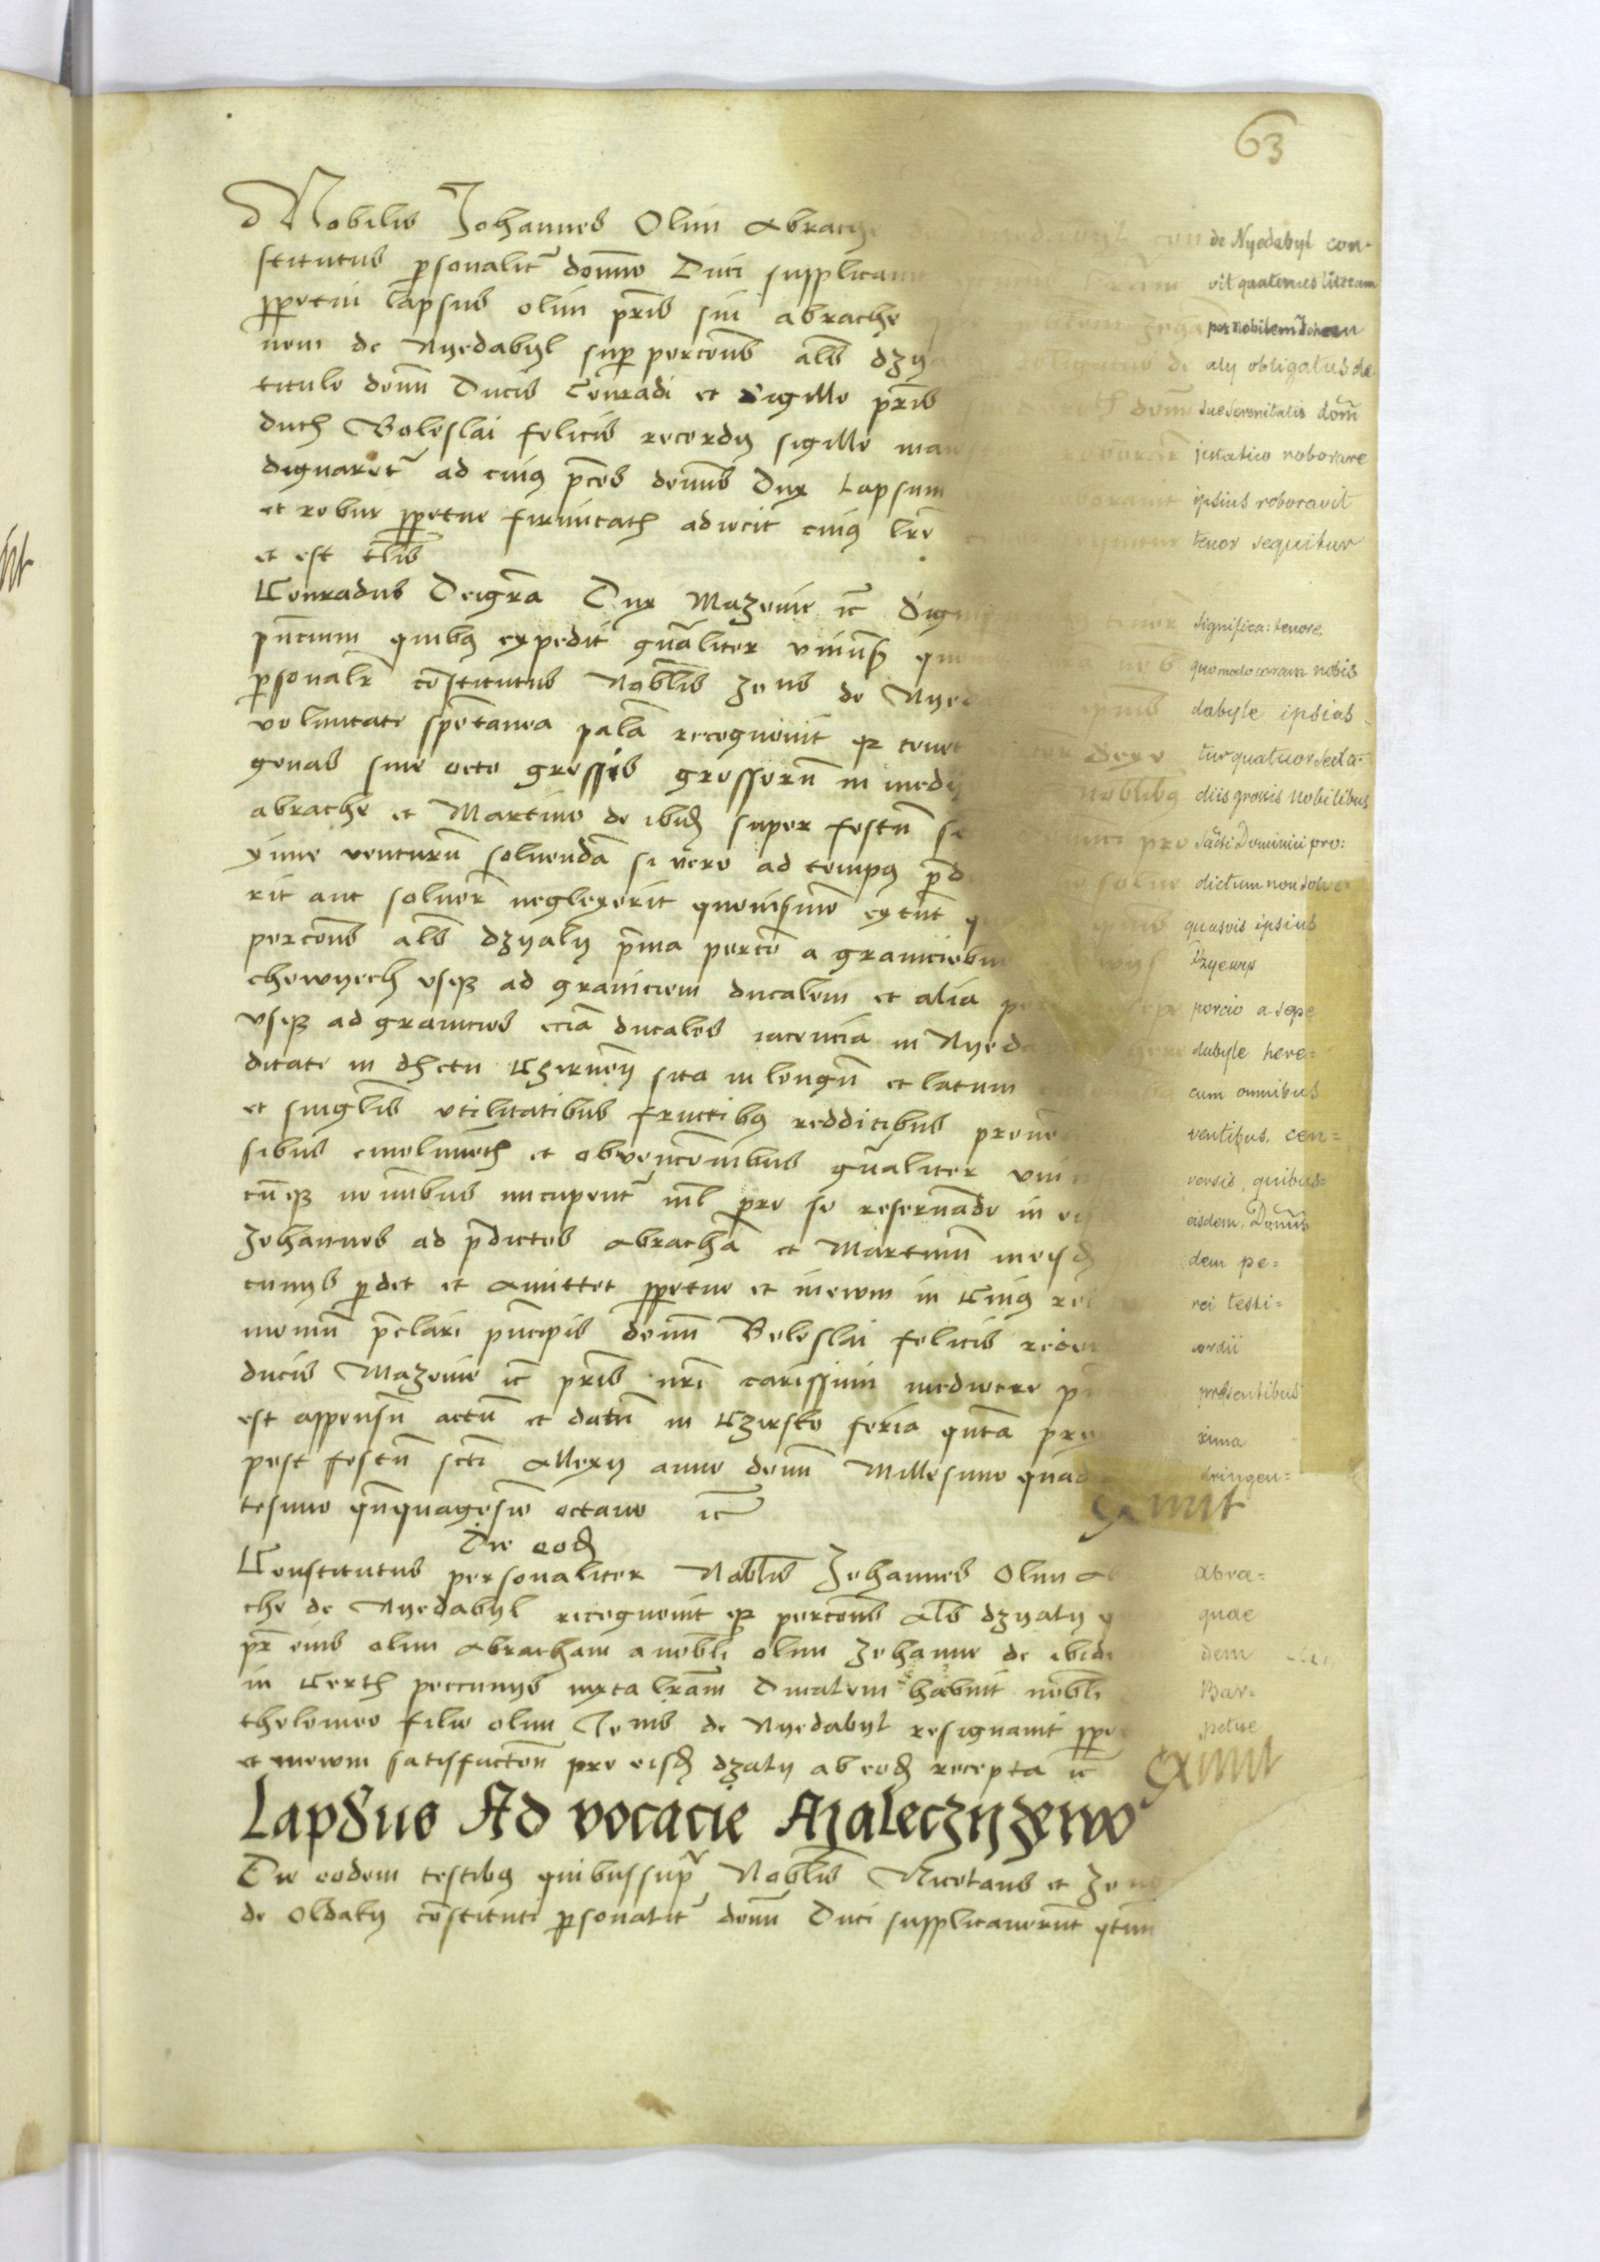 63
Nobilis Johannes Olim Abrache de Nyedabyl con-
stitutus psonalit domino Duci supplicavit vit quatenus literam
ppetui lapsus olim pris sui abrache per nobilem Johan
nem de Nyedabyl sup porcons als dzya aly obligatus de
titulo domi Ducis Conradi et Sigillo pris sue Serenitatis dom
ducis Boleslai felicis recordy sigillo maiestatico roborare
dignaret ad cuius pces domns Dux Lapsum ipsius roboravit
et robur ppetue firmitatis adiecit cuius lre tenor sequitur
et est tlis
Conradus Deigra Dux Mazovie ic significa: tenore
pncium quibus expedit gnaliter univs quomodo coram nobis
psonalr constitutus Noblis Jens de Nyedabyle ipsius
voluntate spontanea pala recognovit q tenetur quatuor sexa-
genas sine octo grossis grossoru in mediis grossis nobilibus
abrache et Martino de ibid super festu Sancti Dominici pro:
xime venturu solvenda si vero ad tempus pdictum non solve
rit aut solver neglexerit quovismo extunc quasvis ipsius
porcons als dzyaly prima porco a graniciebus Dzyewys
chowyech usq ad graniciem ducalem et alia porcio a sepe
usq ad granicies ecia ducales iacencia in Nyedabyle here=
ditate in dstctu Czirnen sita in longu et latum cum omnibus
et singlis utilitatibus fructibus redditibus proventibus, cen=
sibus emolimetis et obvencionibus gnaliter universis, quibus=
cuq nominibus nucupent nil pro se reservando in eisdem, Domns
Johannes ad pdictos Abracha et Martinu in eisdem pe=
cunys pdet et Amittet ppetue et inevum in Cuius rei testi=
moniu pclari pncipis domi Boleslai felicis recordii
ducis Mazovie ic pris nri carissimi mediocre presentibus
est appensu actu et datu in Czirsko feria qnta proxima
post festu scti Allexy anno domi Millesimo quadringen=
tesimo qnquagesimo octavo ic
Exivit
Die eod
Constitutus personaliter Noblis Johannes Olim Abra=
che de Nyedabyl recognovit q porcons Als dzyaly quae
pr eius olim Abraham a nobli olim Johanne de ibidem
in Certis peccunys iuxta lram Ducalem habuit nobli Bar-
tholomeo filio olim Jenis de Nyedabyl resignavit ppetue
et inevum satisfacton pro eisd dzaly ab eod recepta ic
Exivit
Lapsus Advocacie
Die eodem testibus quibussup Noblis Nicolaus et Jens
de Oldaky constituti psonalit domi Duci supplicaverut qtnus